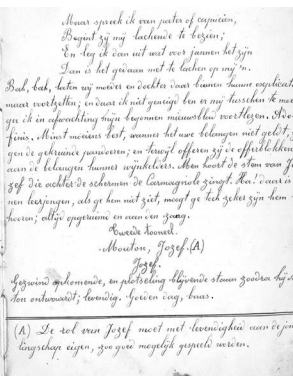 Maar spreek ik van pater of capucien,
Begint zij mij lachende te bezien;
En leg ik dan uit wat voor mannen het zijn
Dan is het gedaan met te lachen op mij 'n.
Bah, bah, laten wij moeder en dochter daar binnen hunne explicatie
maar voortzetten; en daar ik niet geneigd ben er mij tusschen te
ge ik in afwachting mijn begonnen nieuwsblad voortlezen.
finis. Minst moeiens best, wanneer het uwe belangen niet geldt,
gen de gekruinde panderen; en terwijl offeren zij de offerblokken
aan de belangen hunner wijnkelders. Men hoort de stem van Jo
zef die achter de schermen de Carmagnole zingt. Ha! daar is
nen leerjongen, als ge hem niet ziet, moogt ge toch zeker zijn hem
hooren; altijd opgeruimd en aan den zang.
Tweede tooneel.
Mouton, Jozef. (A)
Jozef.
Gezwind aankomende, en plotseling blijvende staan zoodra hij
ton ontwaardt; levendig. Goeden dag, baas.
(A) De rol van Jozef moet met levendigheid aan de jon
lingschap eigen, zoo goed mogelijk gespeeld worden.